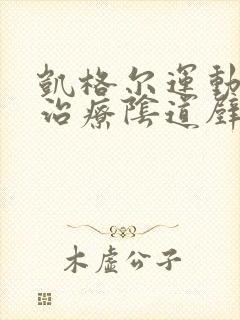 凱格尔運動
治療陰道壁
木虛公子